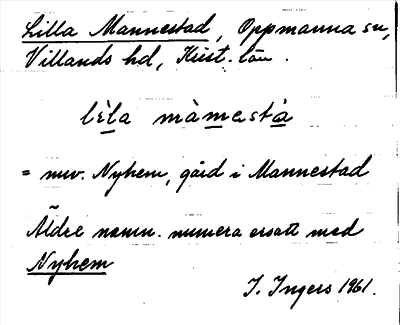 Lilla Mannestad, Oppmanna sn,
Villands hd, Krist. län.
lɛ̀la màmestá
= nuv. Nyhem, gård i Mannestad
Äldre namn. numera ersatt med
Nyhem
I. Ingers 1961.